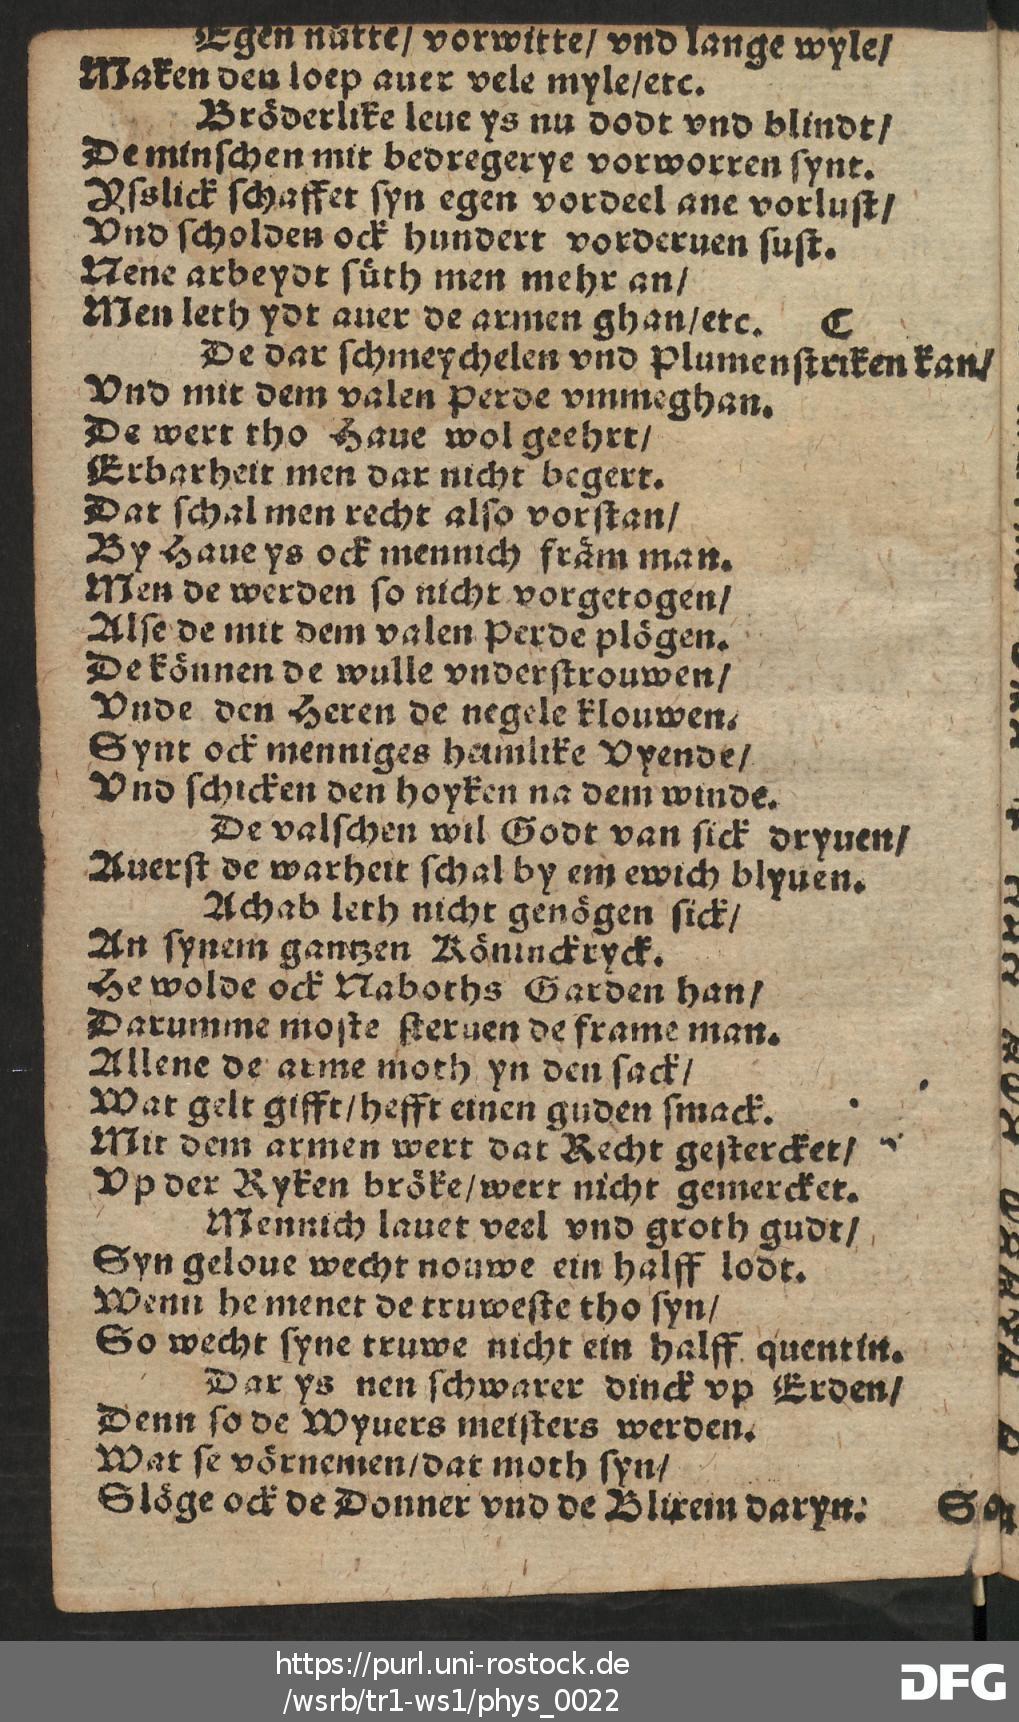 Egen nütte/ vorwitte/ vnd lange wyle/
Maken den loep auer vele myle/etc.
Bröderlike leue ys nu dodt vnd blindt/
De minschen mit bedregerye vorworren synt.
Ysslick schaffet syn egen vordeel ane vorlust/
Vnd scholden ock hundert vorderuen sust.
Nene arbeydt süth men mehr an/
Men leth ydt auer de armen ghan/etc. C
De dar schmeychelen vnd Plumenstriken kan/
Vnd mit dem valen Perde vmmeghan.
De wert tho Haue wol geehrt/
Erbarheit men dar nicht begert.
Dat schal men recht also vorstan/
By Haue ys ock mennich främ man.
Men de werden so nicht vorgetogen/
Alse de mit dem valen Perde plögen.
De können de wulle vnderstrouwen/
Vnde den Heren de negele klouwen.
Synt ock menniges heimlike Vyende/
Vnd schicken den hoyken na dem winde.
De valschen wil Godt van sick dryuen/
Auerst de warheit schal by em ewich blyuen.
Achab leth nicht genögen sick/
An synem gantzen Köninckryck.
He wolde ock Naboths Garden han/
Darumme moste steruen de frame man.
Allene de arme moth yn den sack/
Wat gelt gifft/hefft einen guden smack.
Mit dem armen wert dat Recht gestercket/
Vp der Ryken bröke/wert nicht gemercket.
Mennich lauet veel vnd groth gudt/
Syn geloue wecht nouwe ein halff lodt.
Wenn he menet de truweste tho syn/
So wecht syne truwe nicht ein halff quentin.
Dar ys nen schwarer dinck vp Erden/
Denn so de Wyuers meisters werden.
Wat se vörnemen/dat moth syn/
Slöge ock de Donner vnd de Blixem daryn.
https://purl.uni-rostock.de
/wsrb/tr1-ws1/phys_0022
DFG